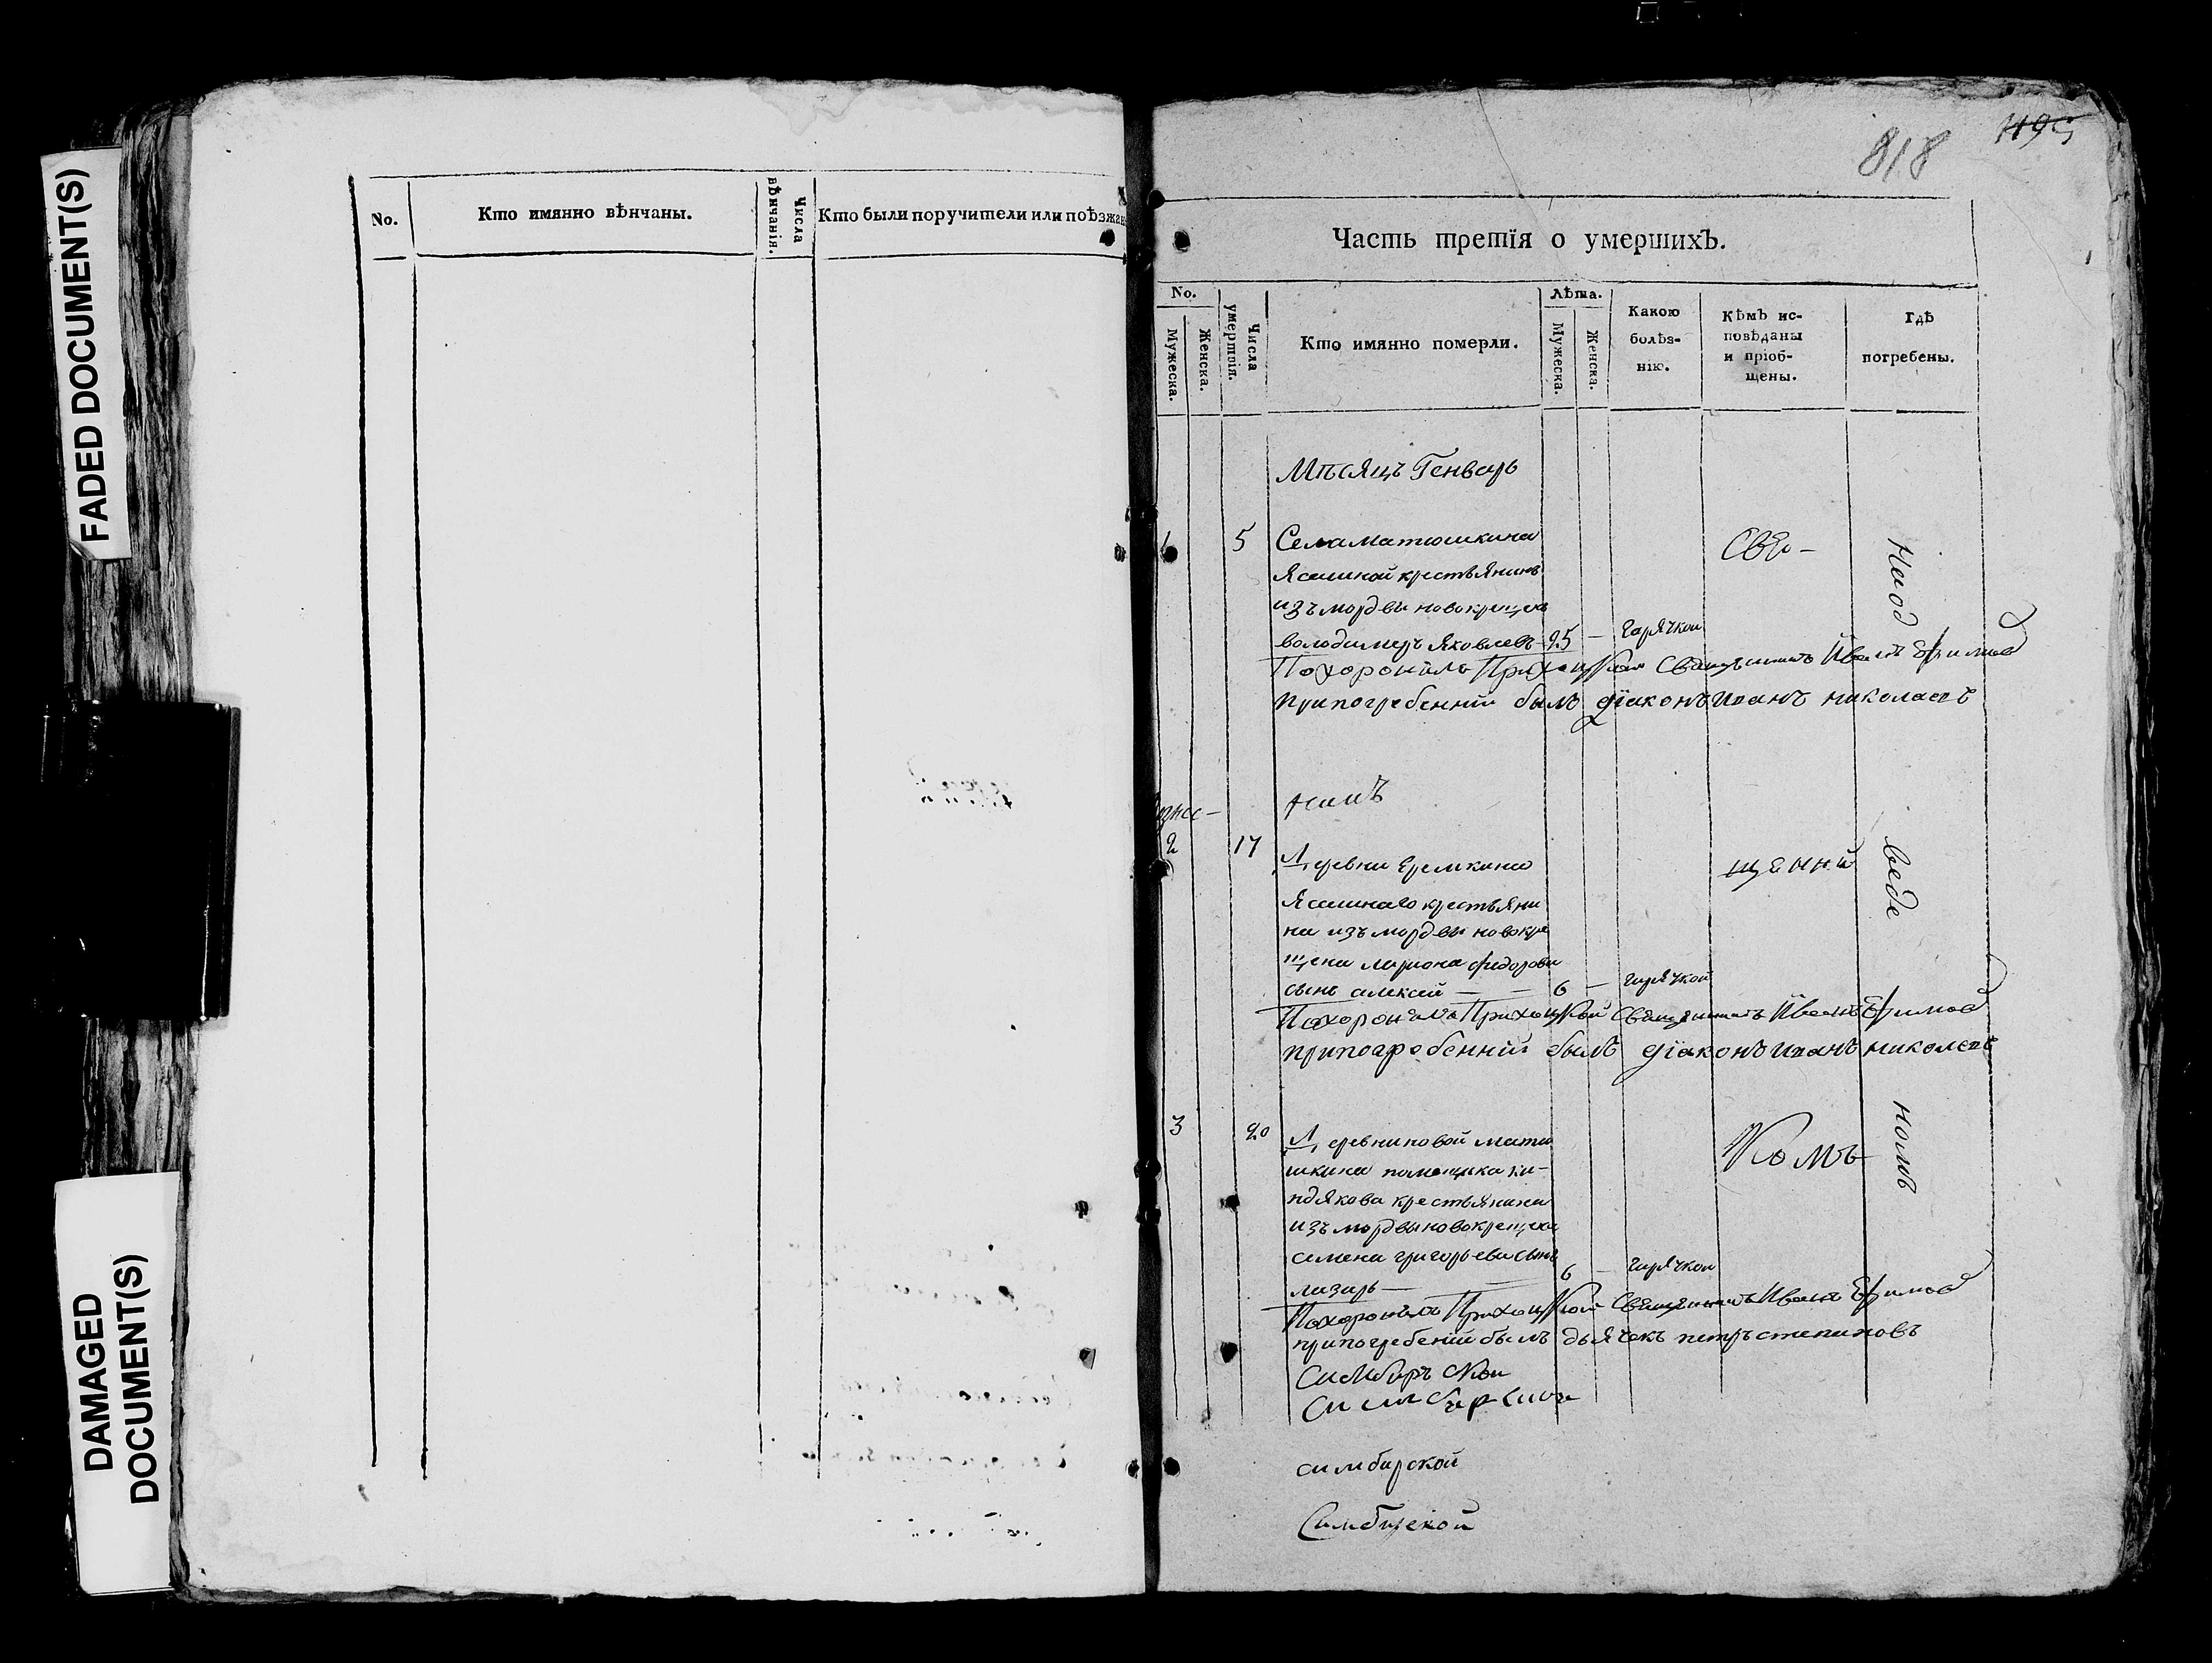 FADED DOCUMENT(S)
DAMAGED
DOCUMENT(S)
No.
Кто имянно вѣнчаны.
Числа
вѣнчанія.
Кто были поручители или поѣзжан
818
Часть третїя о умершихЪ.
No.
Мужеска.
Женска.
Числа
умертвія.
Кто имянно померли.
Лѣта.
Мужеска.
Женска.
Какою
болѣз-
нію.
КѣмЪ ис-
повѣданы
и пріоб-
щены.
Гдѣ
погребены.
Мѣсяцъ Генварь
1 5 Села матюшкина
Ясашной крестьянинъ
изъ мордвы новокрещенъ
володимеръ яковлевъ 25 — гарячкой
Похоронилъ Приходской Священникъ Иванъ Ефимов
при погребении былъ дїаконъ иванъ николаевъ
2 17 Деревни Еремкина
Ясашнаго крестьяни
на изъ мордвы новокре
щена лариона федорова
сынъ алексей — — 6 — гарячкой
Похоронилъ Приходской Священникъ Иванъ Ефимов
при погребении былъ дїаконъ иванъ николаевъ
3 20 Деревни новой матю
шкина помещика ки-
ндякова крестьянина
изъ мордвы новокрещена
семена григорьева сынъ
лазарь — 6 — гарячкой
Похоронилъ Приходской Священникъ Иванъ Ефимов
при погребении былъ дьячекъ петръ степановъ
Свя-
щенни
Комъ
На од
веде
номъ
Симбирской
симбирской
Симбирской